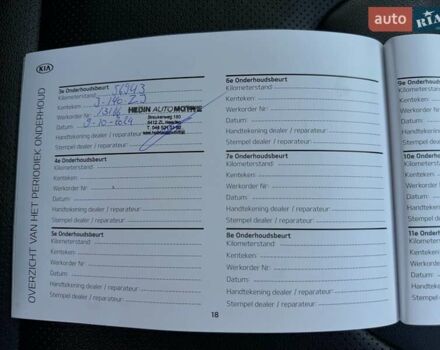 auto RIA
KIA
OVERZICHT VAN HET PERIODIEK ONDERHOUD
3e Onderhoudsbeurt
Kilometerstand: 56943
Kenteken:
Werkorder Nr:
Datum: 9-10-2024
Handtekening dealer / reparateur:
Stempel dealer / reparateur:
HEDIN AUTOMOTIVE
4e Onderhoudsbeurt
Kilometerstand:
Kenteken:
Werkorder Nr:
Datum:
Handtekening dealer / reparateur:
Stempel dealer / reparateur:
5e Onderhoudsbeurt
Kilometerstand:
Kenteken:
Werkorder Nr:
Datum:
Handtekening dealer / reparateur:
Stempel dealer / reparateur:
6e Onderhoudsbeurt
Kilometerstand:
Kenteken:
Werkorder Nr:
Datum:
Handtekening dealer / reparateur:
Stempel dealer / reparateur:
7e Onderhoudsbeurt
Kilometerstand:
Kenteken:
Werkorder Nr:
Datum:
Handtekening dealer / reparateur:
Stempel dealer / reparateur:
8e Onderhoudsbeurt
Kilometerstand:
Kenteken:
Werkorder Nr:
Datum:
Handtekening dealer / reparateur:
Stempel dealer / reparateur:
18
9e Onde
Kilomet
Kenteke
Werkord
Datum:
Handte
Stempe
10e On
Kilome
Datum
Handt
Stemp
11e On
Kilom
Kente
Werk
Datu
Hand
Stem